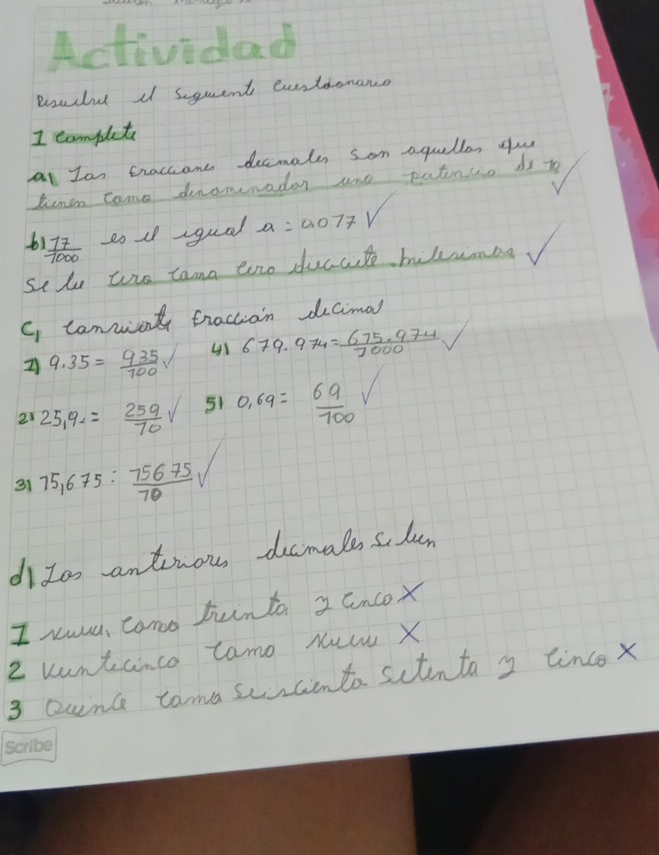 Actividad
Resuelve el siguiente cuestionario
1 complete
a) Las fracciones decimales son aquellas que
tienen como denominador una potencia de 10
b) 17/1000 es el igual a = 0,017
se lee cero coma cero diecisiete milesimas
c, convierte fracción decimal
1) 9.35 = 935/100
4) 679.974 = 675.974/1000
2) 25,9 = 259/10
5) 0,69 = 69/100
3) 15,675 = 15675/10
d) Los anteriores decimales se leen
1 nueve, coma treinta y cinco X
2 veinticinco coma nueve X
3 Quince coma seiscienta setenta y cinco X
Scribe